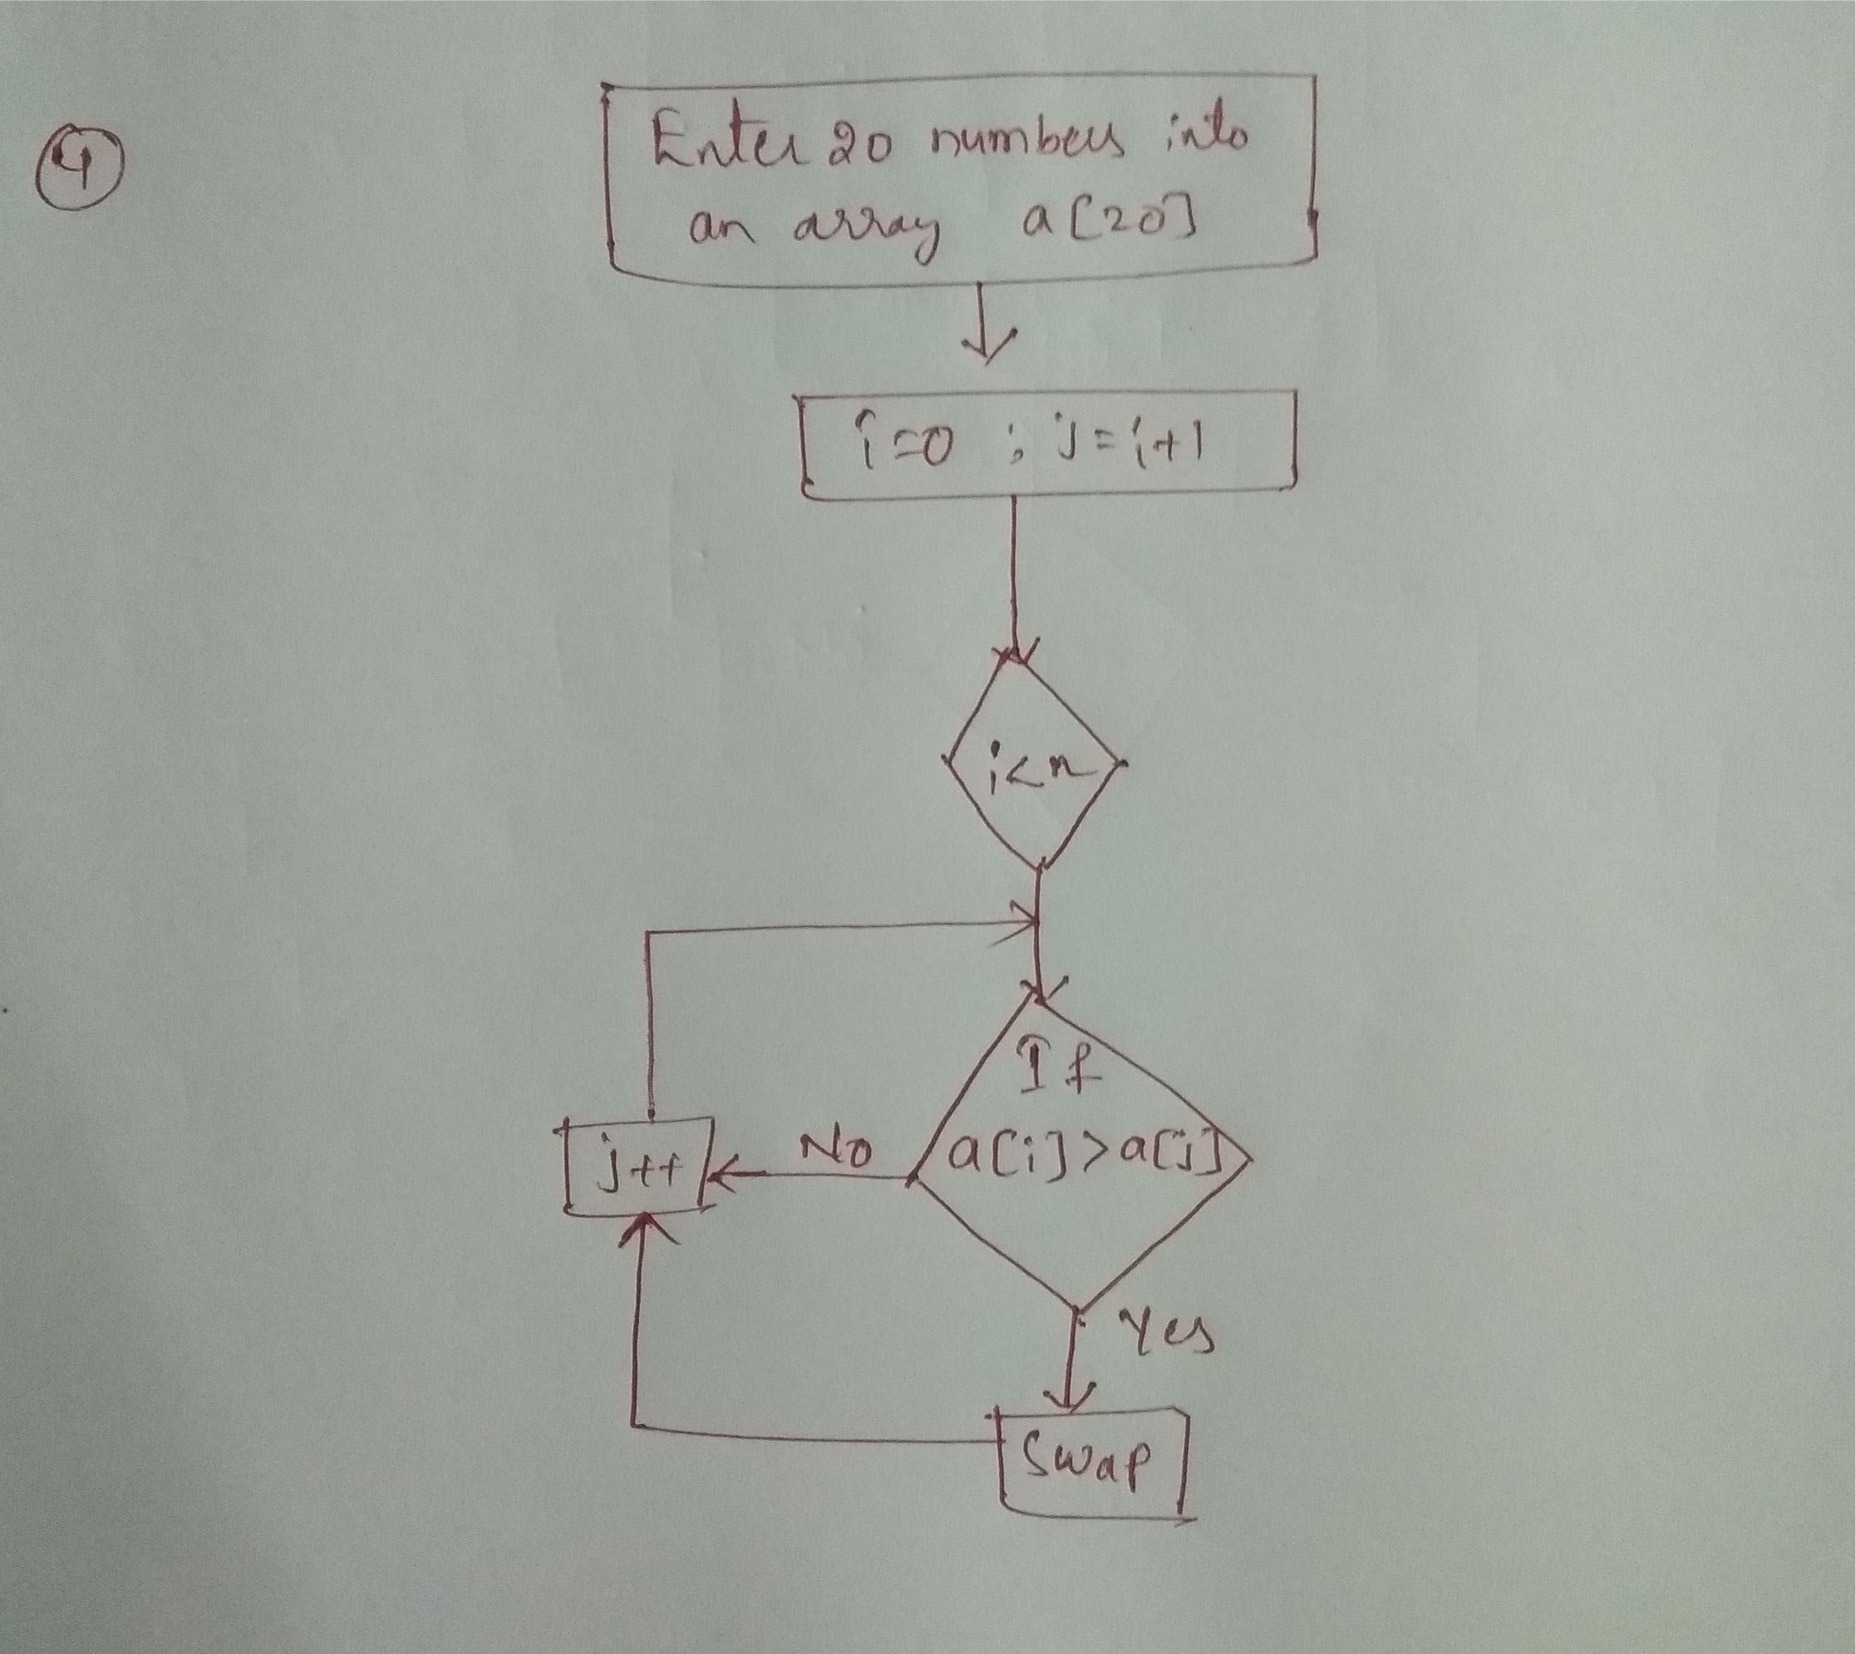 4
Enter 20 numbers into
an array a[20]
i=0 ; j=i+1
i<n
If
a[i]>a[j]
No
j++
Yes
Swap